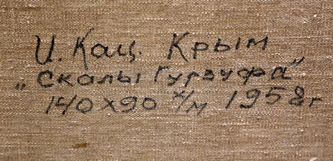 И. Кац. Крым
„Скалы Гурзуфа"
140 х 90 х/м 1958 г